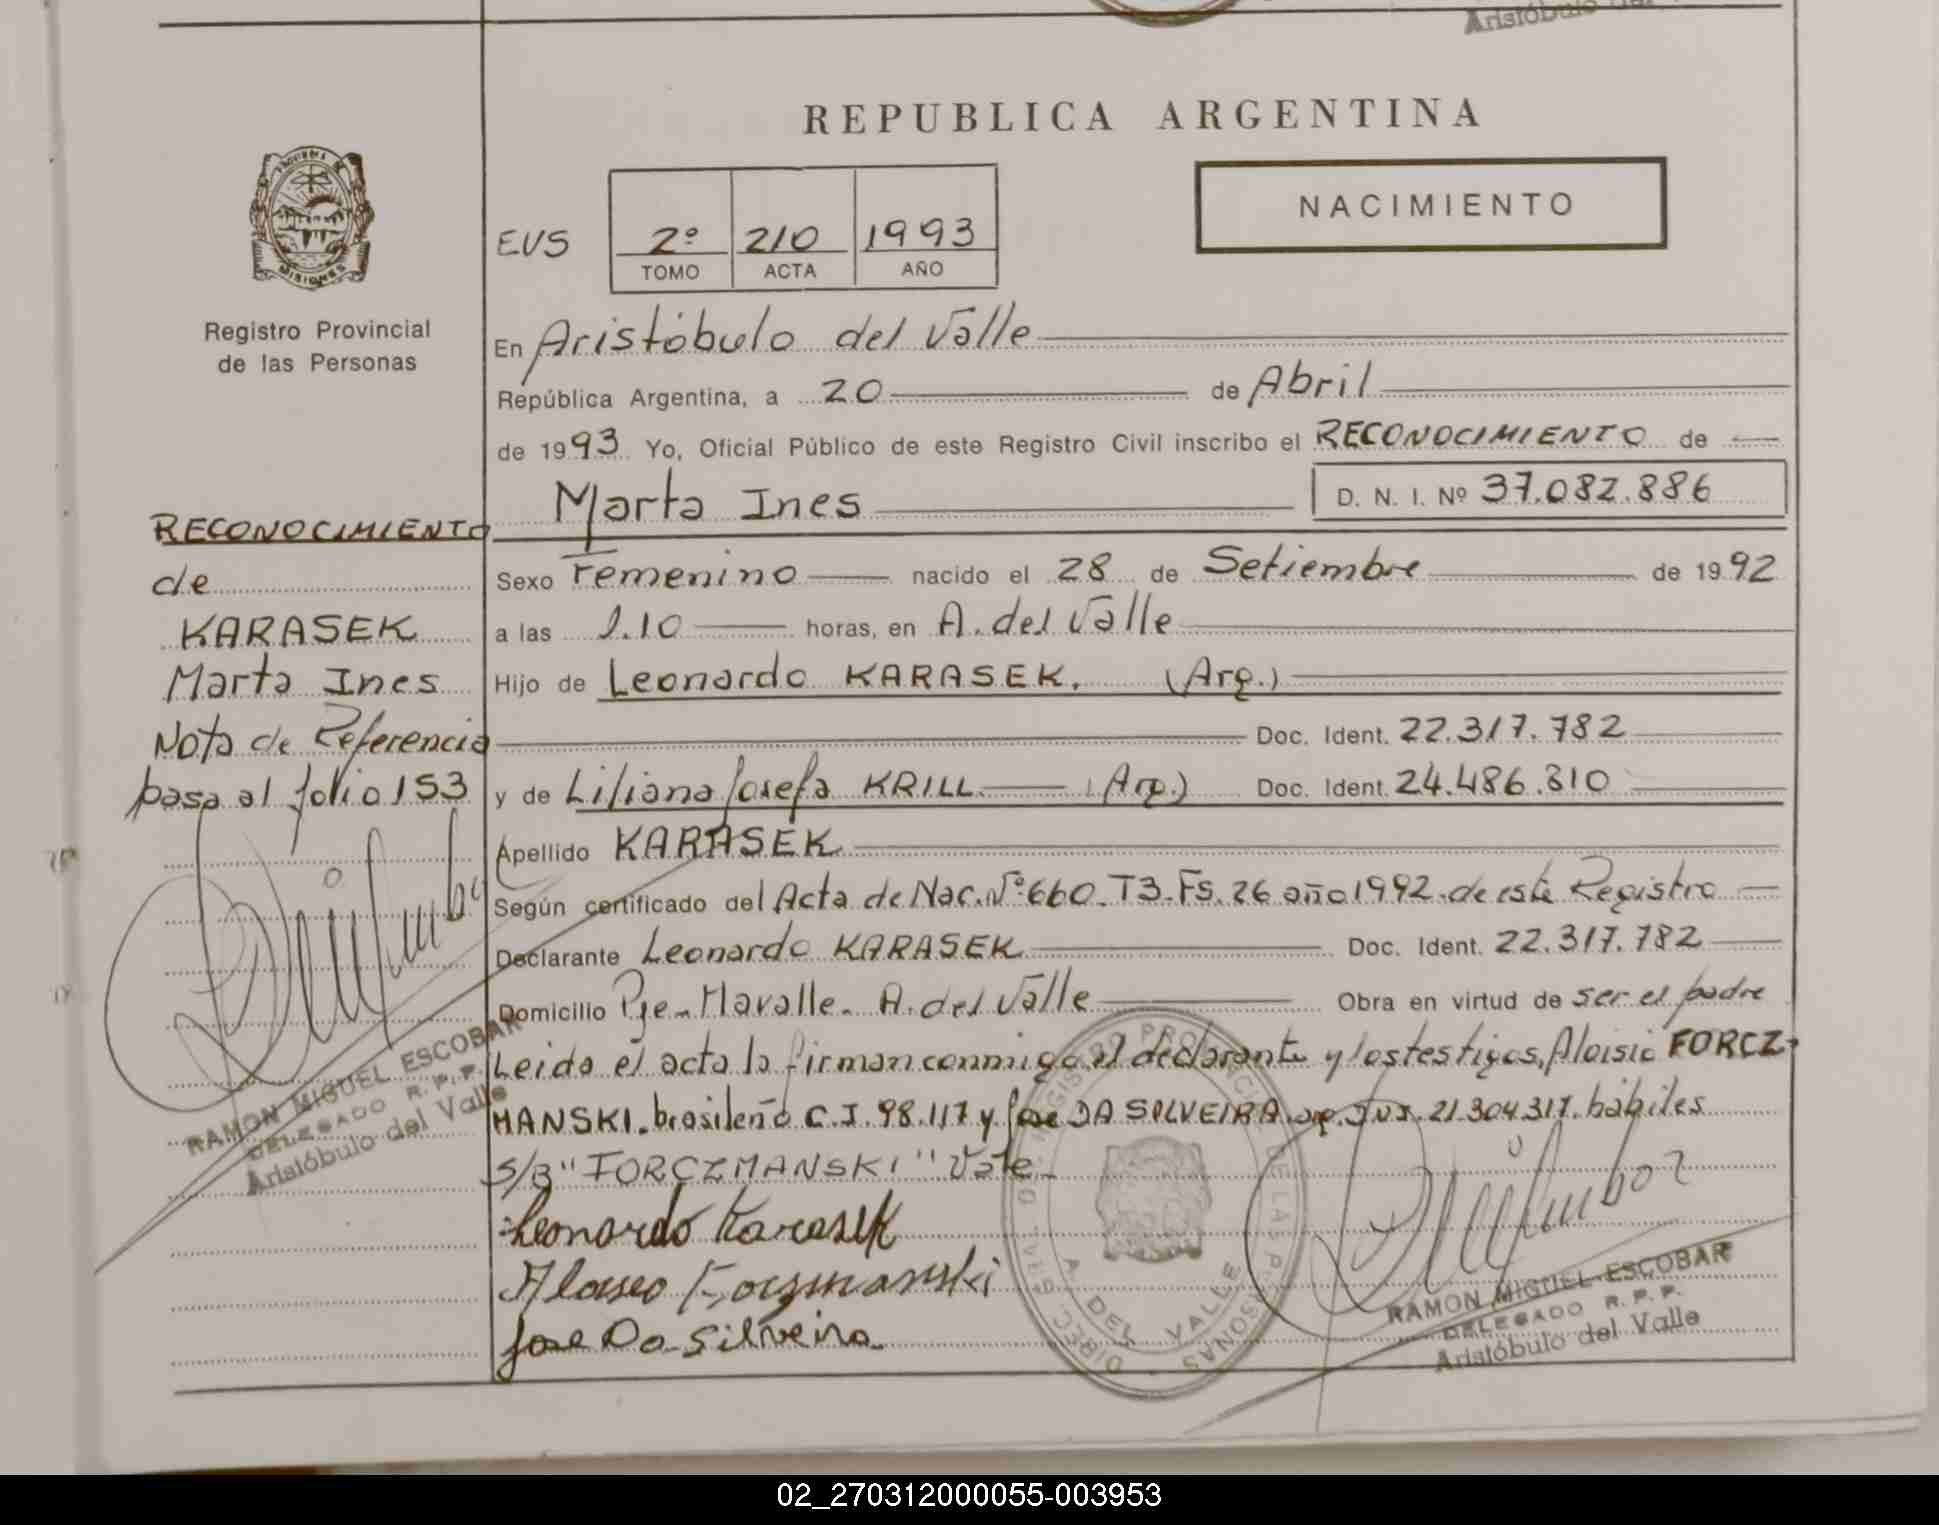 Aristóbulo del
REPUBLICA ARGENTINA
NACIMIENTO
EVS 2º 210 1993
TOMO ACTA AÑO
PROVINCIA DE MISIONES
Registro Provincial
de las Personas
En Aristóbulo del Valle
República Argentina, a 20 de Abril
de 1993 Yo, Oficial Público de este Registro Civil inscribo el RECONOCIMIENTO de
Marta Ines D. N. I. Nº 37.082.886
Sexo Femenino nacido el 28 de Setiembre de 1992
a las 1.10 horas, en A. del Valle
Hijo de Leonardo KARASEK. (Arg.)
Doc. Ident. 22.317.782
y de Liliana Josefa KRILL (Arg.) Doc. Ident. 24.486.810
Apellido KARASEK
Según certificado del Acta de Nac. Nº 660. T3. Fs. 26 año 1992 de este Registro
Declarante Leonardo KARASEK Doc. Ident. 22.317.782
Domicilio Pje. Mavalle. A. del Valle Obra en virtud de ser el padre
Leida el acta la firman conmigo el declarante y los testigos, Aloisio FORCZ-
MANSKI. brasileño C.I. 98.117 y Jose DA SILVEIRA arg. D.N.I. 21.304.317. hábiles
S/B "FORCZMANSKI" Vale
Leonardo Karasek
Aloiseo Forczmanski
Jose Da Silveira
RECONOCIMIENTO
de
KARASEK
Marta Ines
Nota de Referencia
pasa al folio 153
RAMON MIGUEL ESCOBAR
DELEGADO R. P. P.
Aristóbulo del Valle
DIREC. GRAL. DEL REGISTRO PROVINCIAL DE LAS PERSONAS
A. DEL VALLE
RAMON MIGUEL ESCOBAR
DELEGADO R. P. P.
Aristóbulo del Valle
02_270312000055-003953